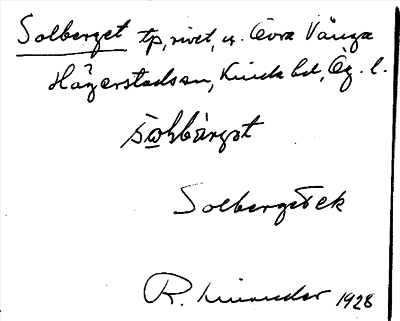 Solberget tp, rivet, u. Övra Vånga
Hägerstads sn, Kinda hd, Ög. l.
Solbergstek
R. Linander 1928